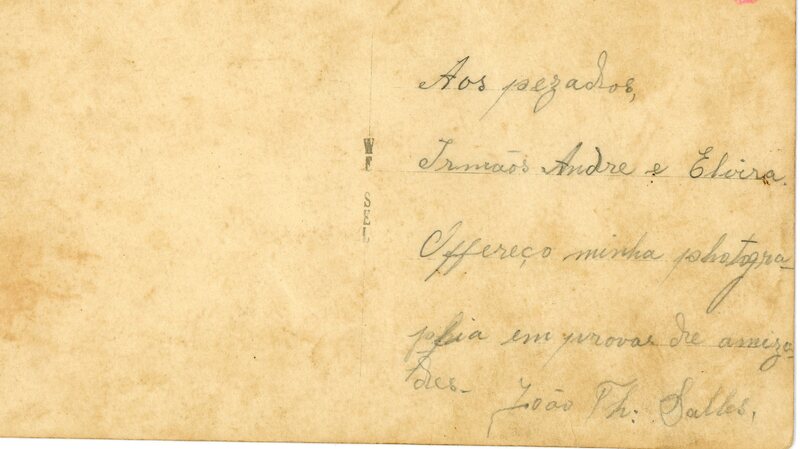 Aos pezados,
Irmãos Andre e Elvira.
Offereço minha photogra-
phia em provas de amiza-
des- João Th. Salles,
WE SEL